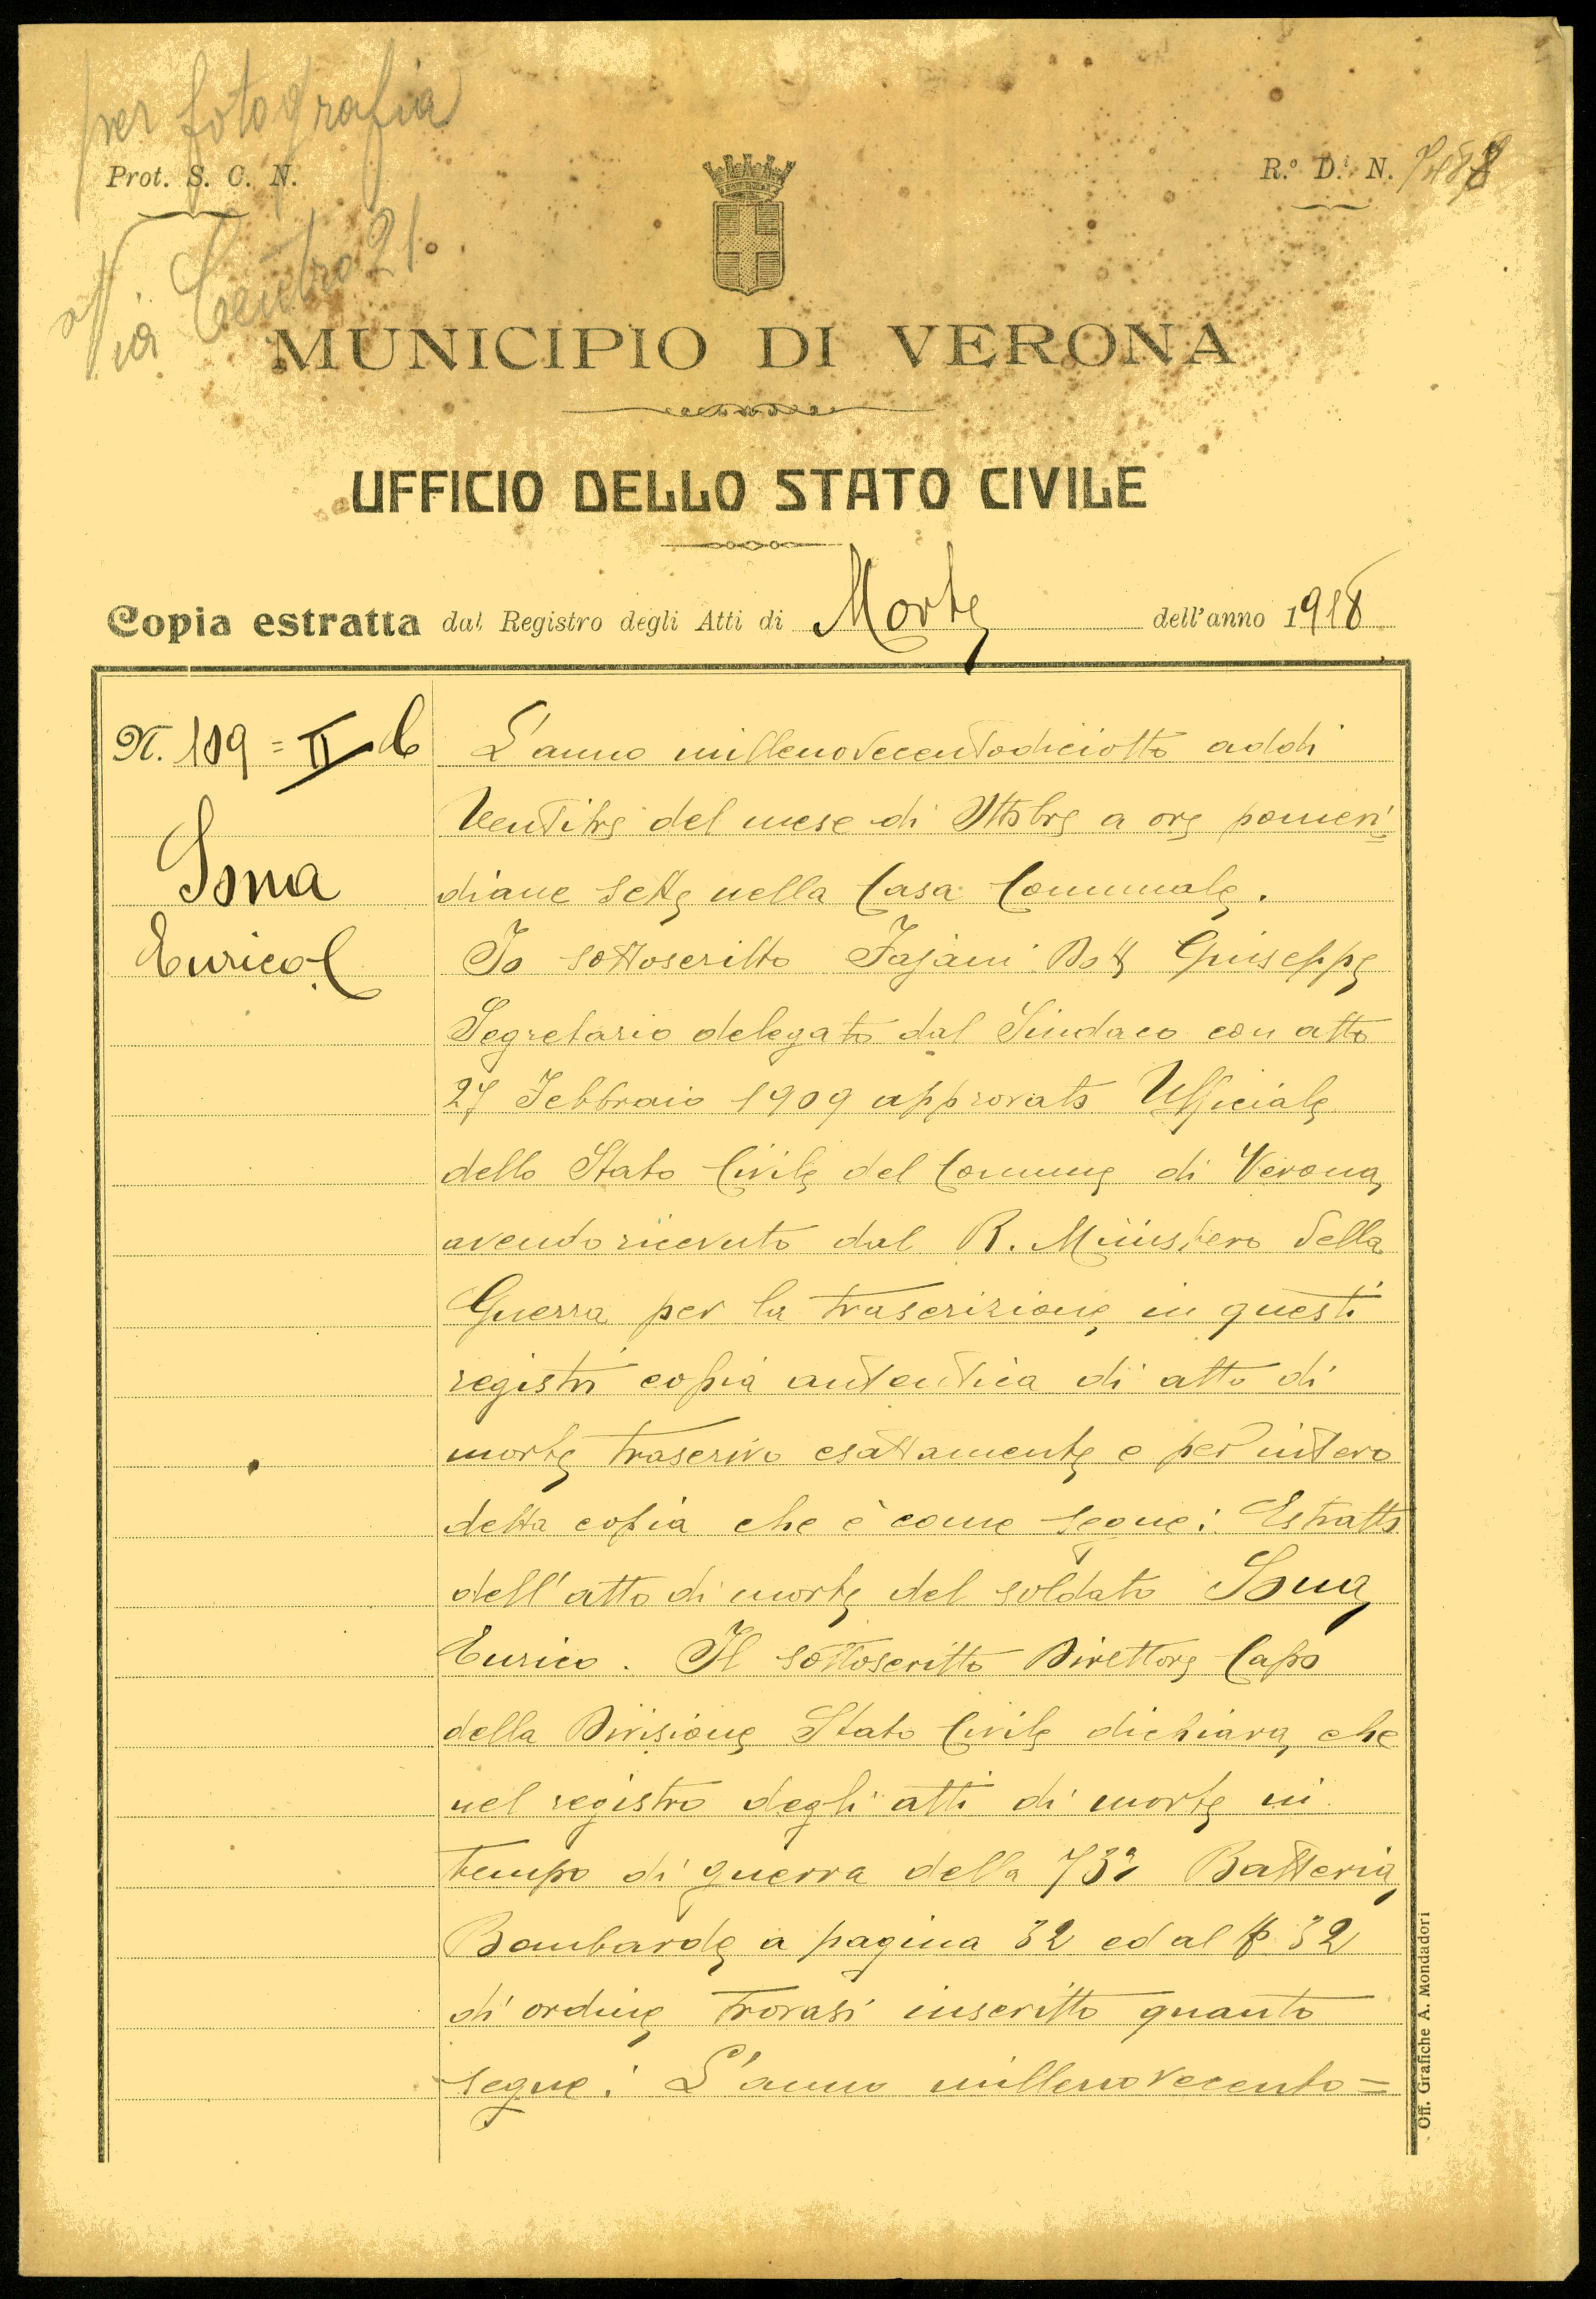 per fotografia
Prot. S. C. N.
R.º D.i N.
Via Centro 21
MUNICIPIO DI VERONA
UFFICIO DELLO STATO CIVILE
Copia estratta dal Registro degli Atti di Morte dell'anno 1918
N. 109 = II C
Isma
Enrico
L'anno millenovecentodiciotto addi
Ventitre del mese di Ottobre a ore pomeri
diane sette nella Casa Comunale.
Io sottoscritto Fajani Dott Giuseppe
Segretario delegato dal Sindaco con atto
27 Febbraio 1909 approvato Ufficiale
dello Stato Civile del Comune di Verona,
avendo ricevuto dal R. Ministero della
Guerra per la trascrizione in questi
registri copia autentica di atto di
morte trascrivo esattamente e per intero
detta copia che è come segue: Estratto
dell'atto di morte del soldato Isma
Enrico. Il sottoscritto Direttore Capo
della Divisione Stato Civile dichiara, che
nel registro degli atti di morte in
tempo di guerra della 73a Batteria
Bombarde a pagina 32 ed al N 32
di ordine trovasi inscritto quanto
segue: L'anno millenovecento=
Off. Grafiche A. Mondadori